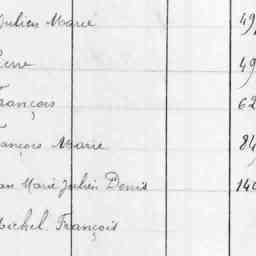 Julien Marie 49
Pierre 49
François 62
François Marie 84
Jean Marie Julien Denis 140
Michel François